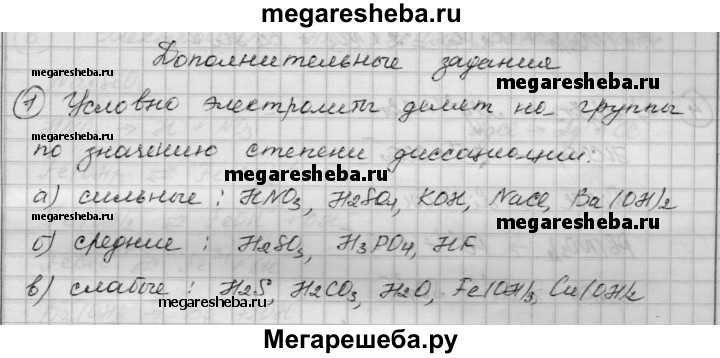 megaresheba.ru
Дополнительные задания
megaresheba.ru
megaresheba.ru
1 Условно электролиты делят на группы
по значению степени диссациации:
megaresheba.ru
а) сильные: HNO3, H2SO4, KOH, NaCl, Ba(OH)2
megaresheba.ru
б) средние: H2SO3, H3PO4, HF
в) слабые: H2S, H2CO3, H2O, Fe(OH)3, Cu(OH)2
megaresheba.ru
megaresheba.ru
Мегарешеба.ру